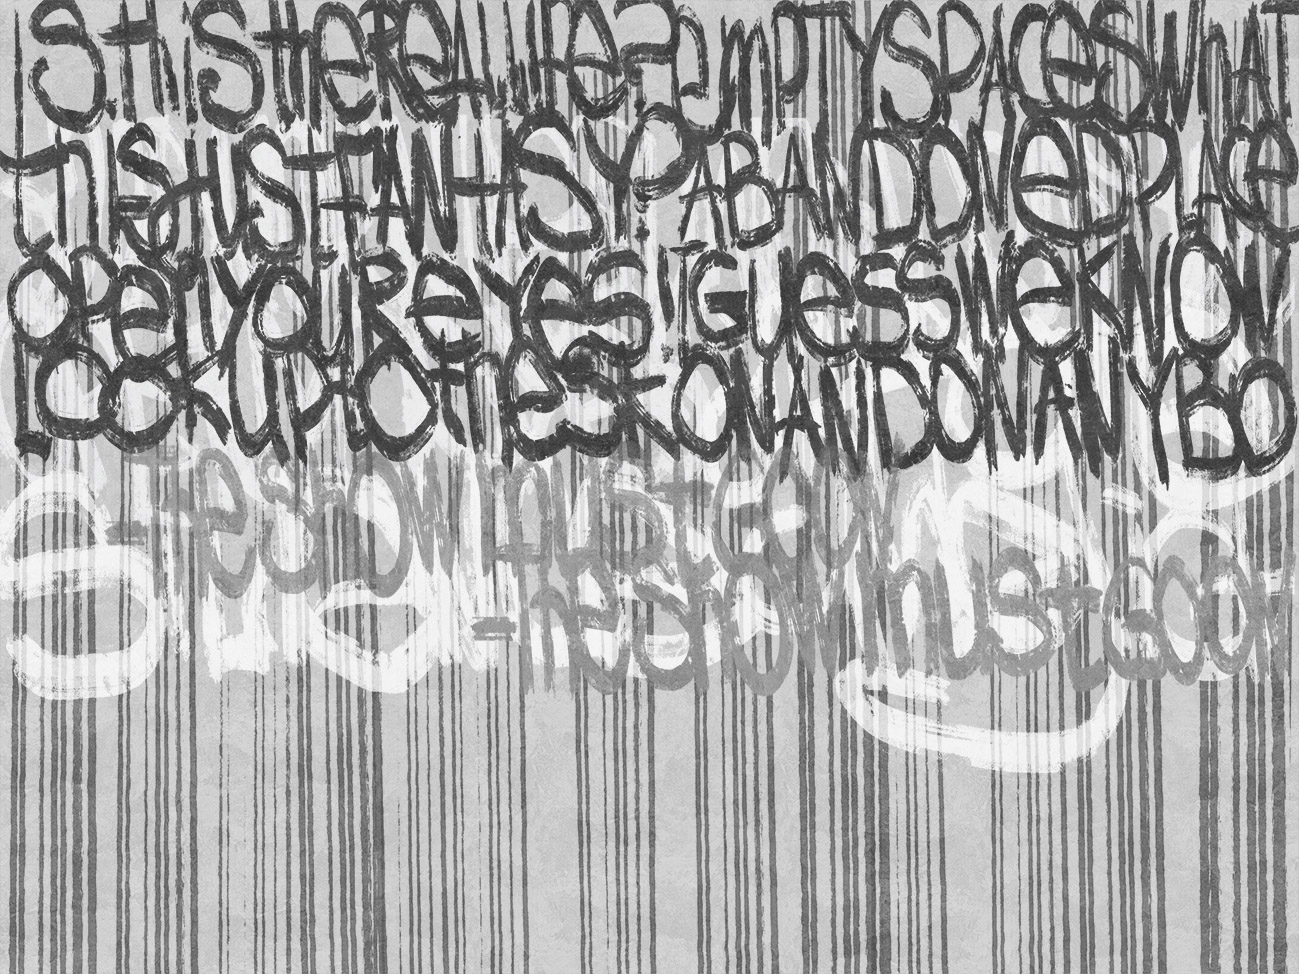 IS tHiS tHeReAL LiFe? EMPTY SPACeS WhAT
tHiS JUSt FANtASY? ABANDONeD PLACe
OPeN YOUR eYeS I GUeSS We KNOW
LOOK UP tO tHe SK ON AND ON ANYBO
tHe SHOW MUSt GO ON
tHe SHOW MUSt GO ON